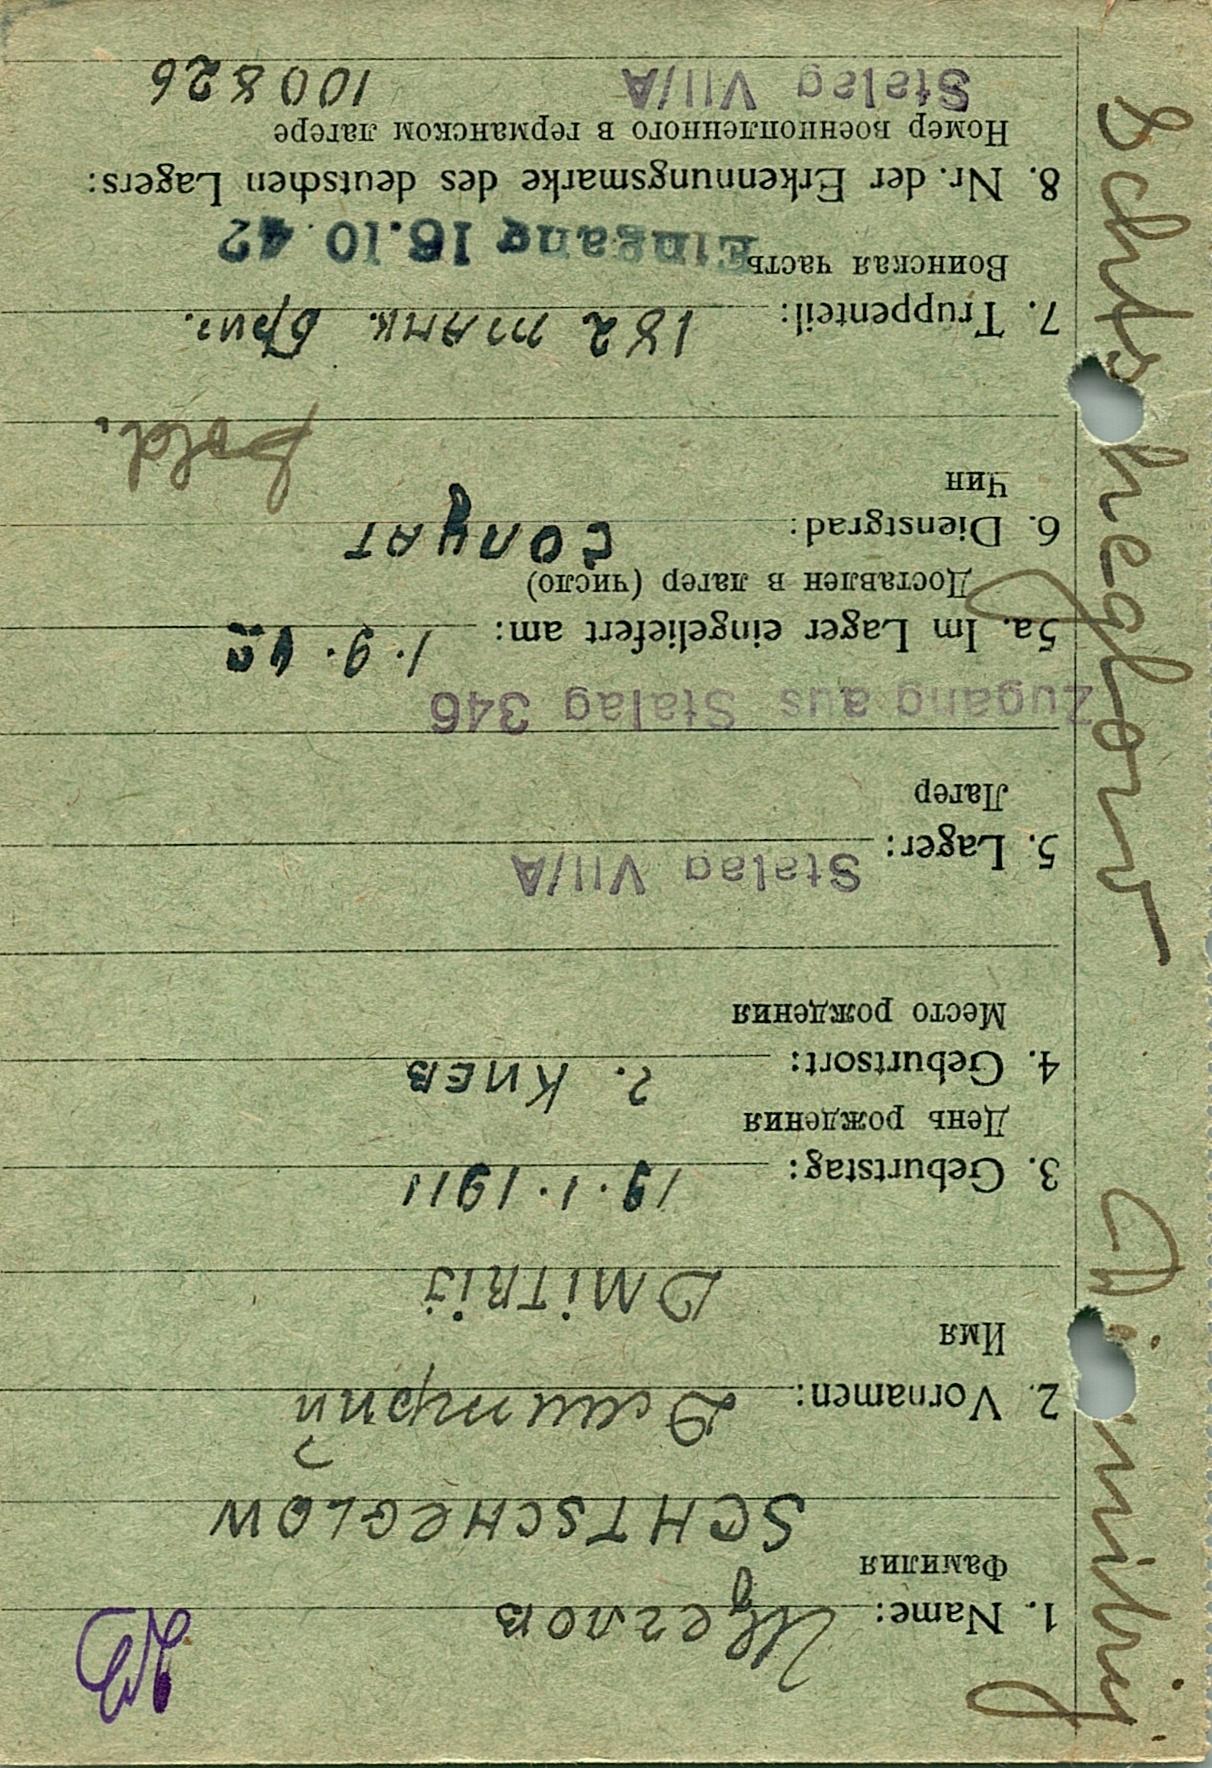 1. Name: Щеглов
Фамилия
SCHTSCHEGLOW
2. Vornamen: Дмитрий
Имя
DMITRIJ
3. Geburtstag: 19.1.1911
День рождения
4. Geburtsort: г. Киев
Место рождения
5. Lager: Stalag VII/A
Лагер
Zugang aus Stalag 346
5a. Im Lager eingeliefert am: 1.9.42
Доставлен в лагер (число)
6. Dienstgrad: солдат
Чин
Sold.
7. Truppenteil: 182 танк. бриг.
Воинская часть
Eingang 16.10.42
8. Nr. der Erkennungsmarke des deutschen Lagers:
Номер военнопленного в германском лагере
Stalag VII/A 100826
Schtscheglow Dimitrij